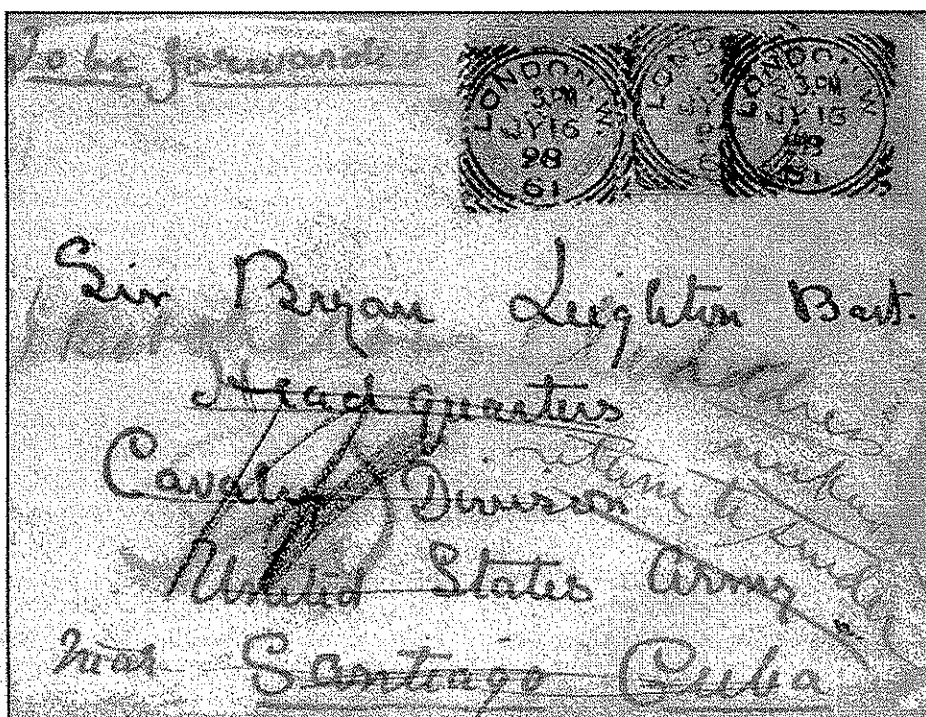 To be forwarded
LONDON. W.
3. PM
JY 16
98
61
LOND
LONDON. W.
3. PM
JY 16
98
61
Sir Bryan Leighton Bart.
Head Quarters
Cavalry Division
return to
United States Army
near Santiago Cuba